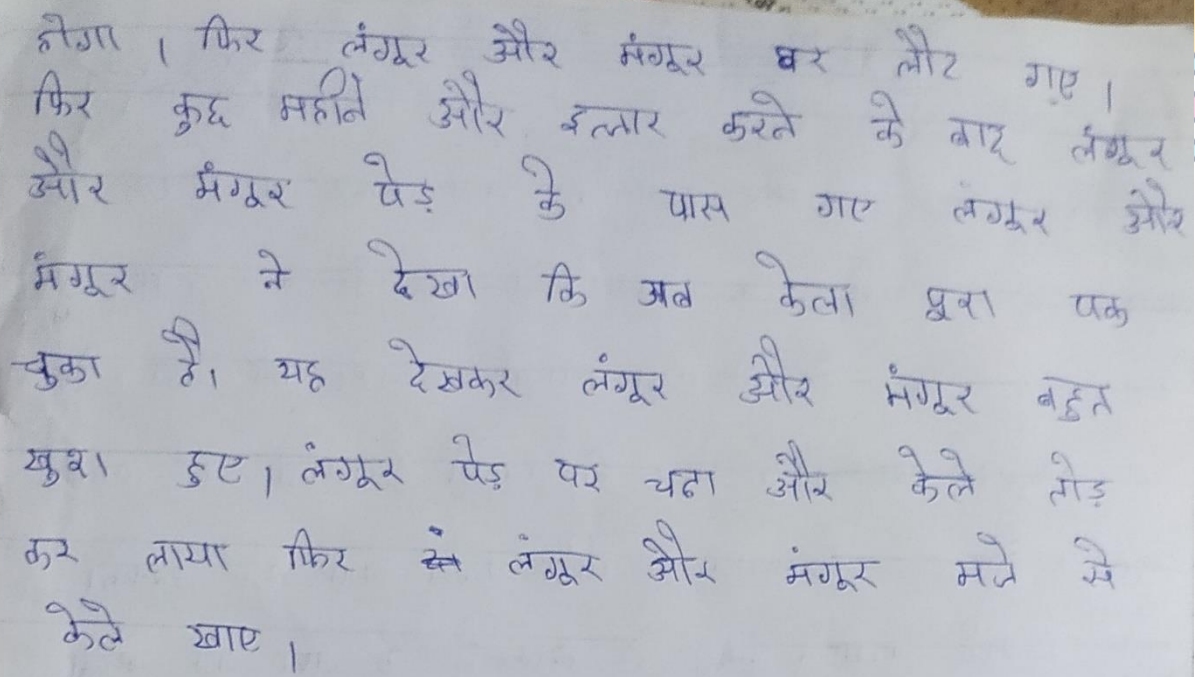 होगा । फिर लंगूर और मंगूर घर लौट गए ।
फिर कुछ महीने और इन्तार करने के बाद लंगूर
और मंगूर पेड़ के पास गए लंगूर और
मंगूर ने देखा कि अब केला पूरा पक
चुका है। यह देखकर लंगूर और मंगूर बहुत
खुश हुए । लंगूर पेड़ पर चढा और केले तोड़
कर लाया फिर लंगूर और मंगूर मजे से
केले खाए ।